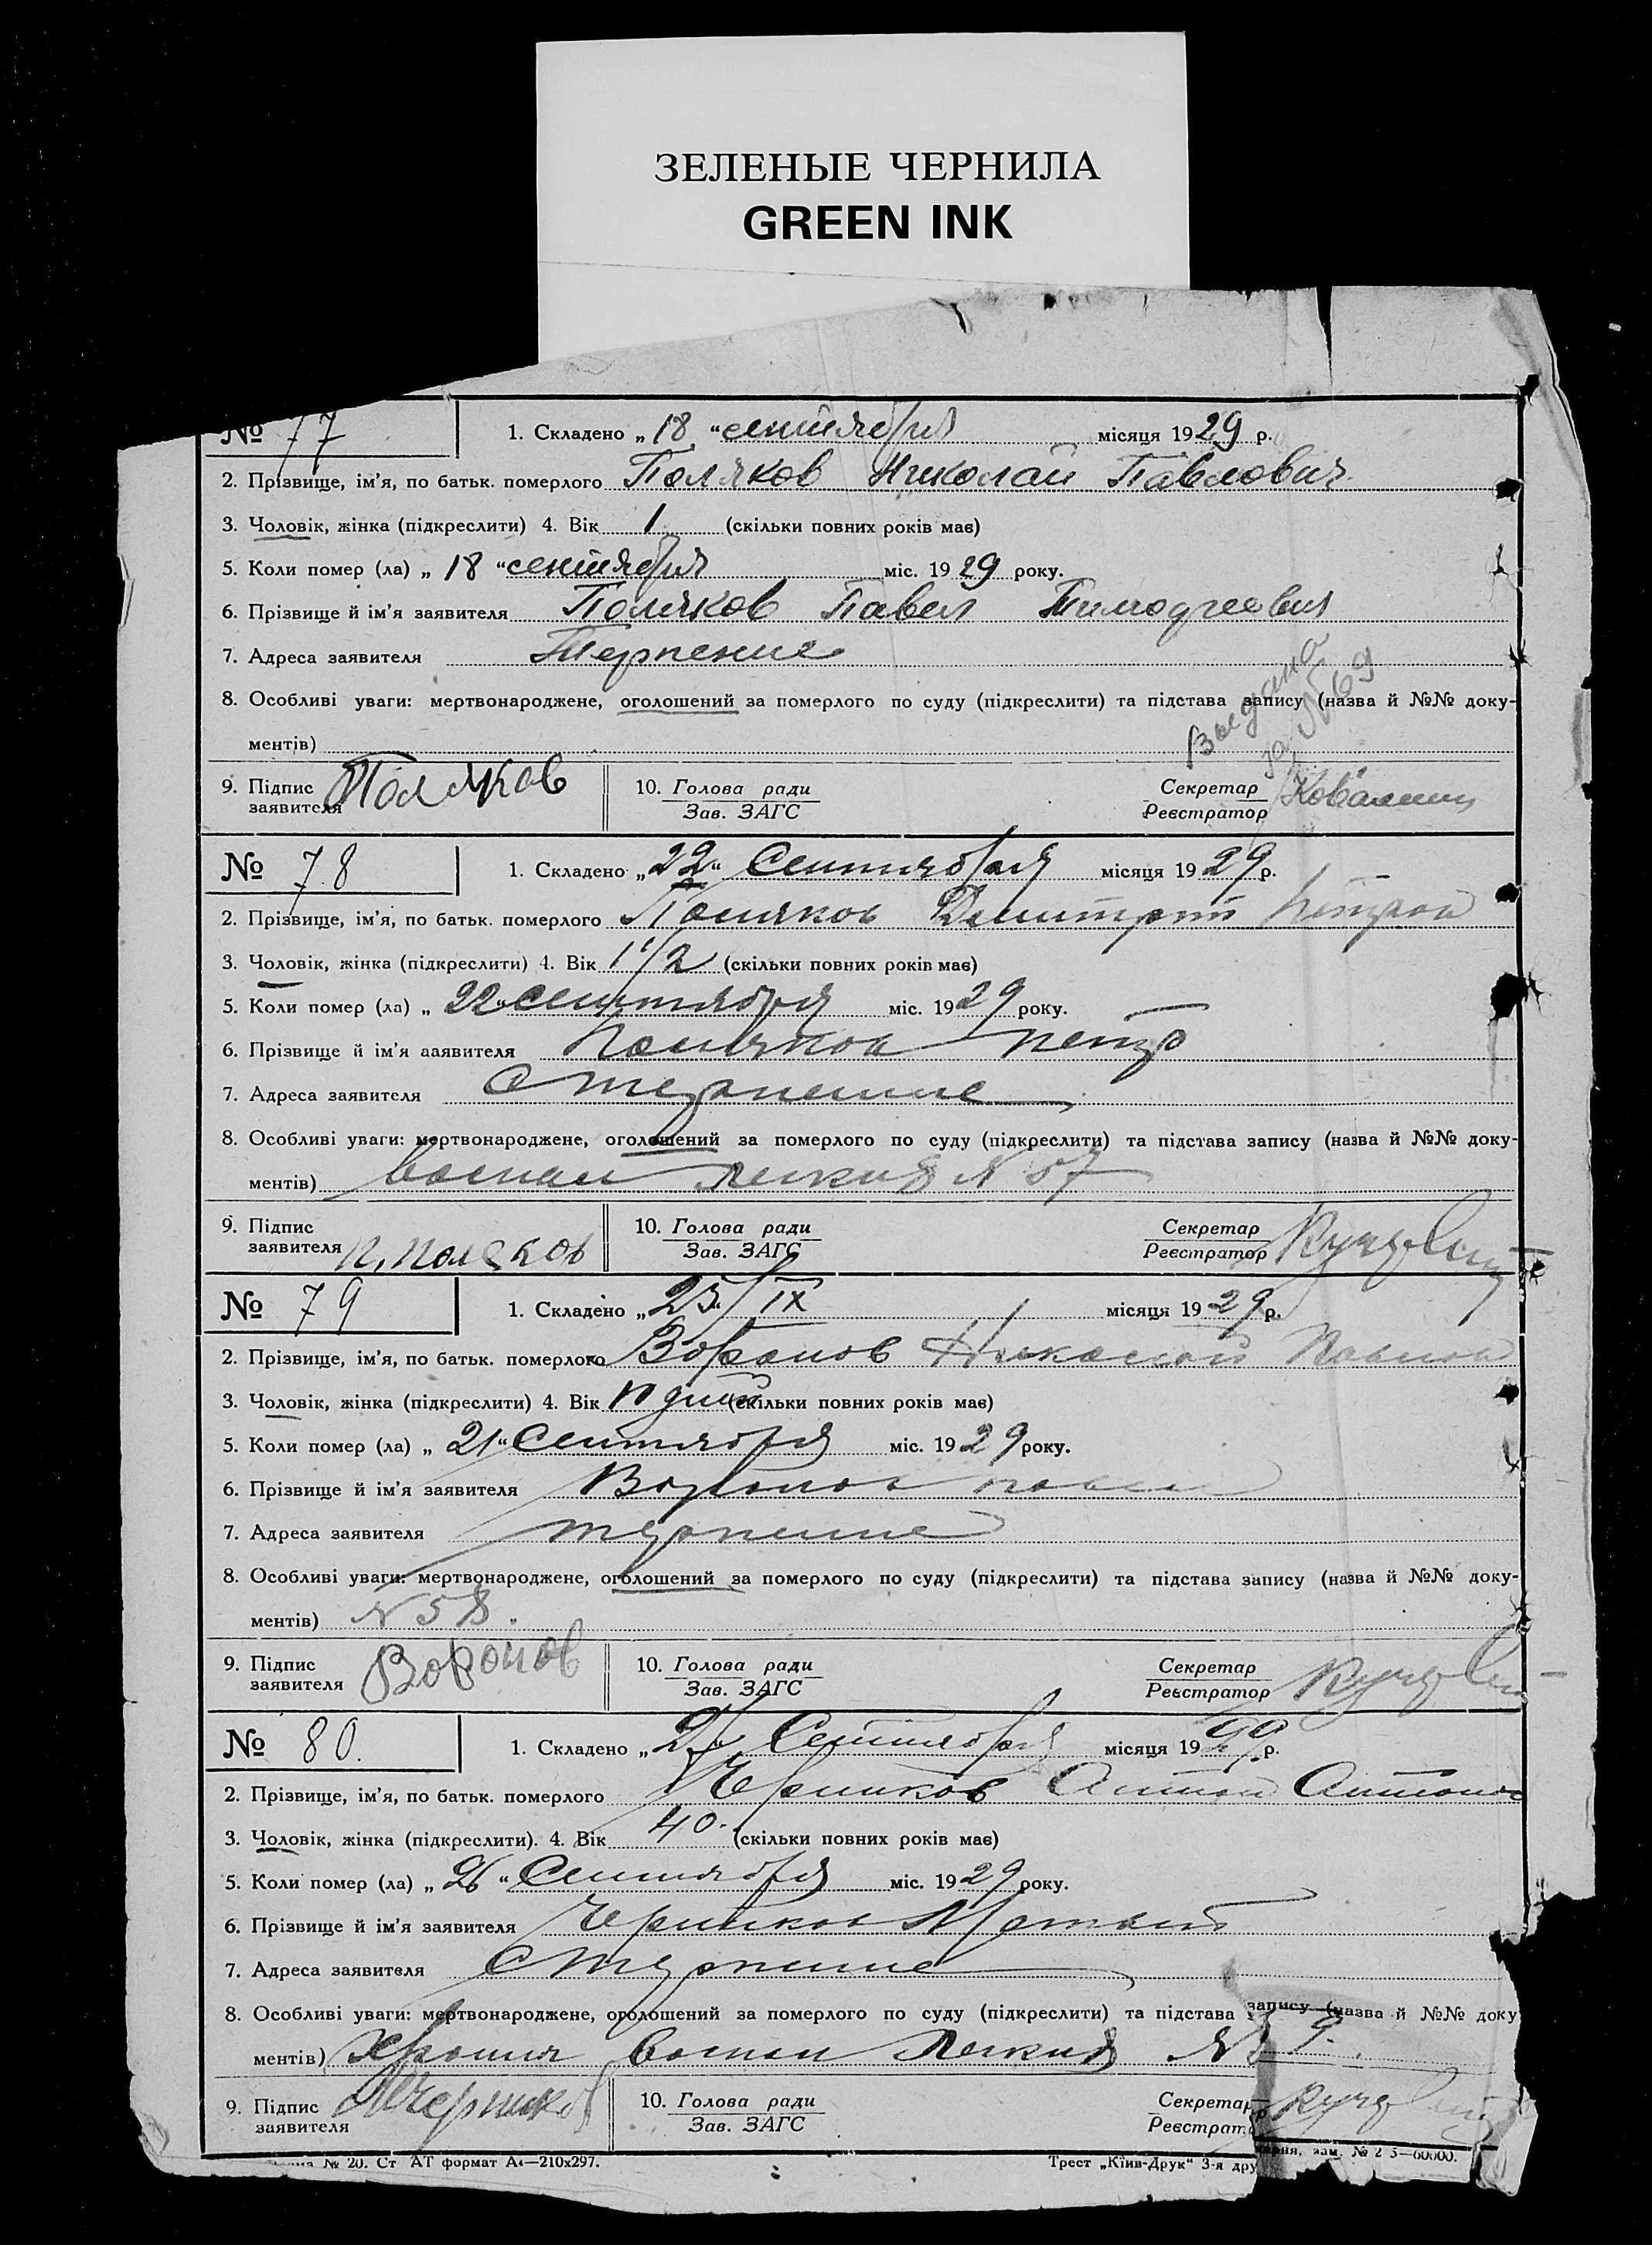 ЗЕЛЕНЫЕ ЧЕРНИЛА
GREEN INK
№ 77 1. Складено „18“ сентября місяця 1929 р.
2. Прізвище, ім’я, по батьк. померлого Поляков Николай Павлович
3. Чоловік, жінка (підкреслити) 4. Вік 1 (скільки повних років має)
5. Коли помер (ла) „18“ сентября міс. 1929 року.
6. Прізвище й ім’я заявителя Поляков Павел Тимофеевич
7. Адреса заявителя Терпение
8. Особливі уваги: мертвонароджене, оголошений за померлого по суду (підкреслити) та підстава запису (назва й №№ доку-
ментів)
Выдана
за № 69
9. Підпис заявителя Поляков 10. Голова ради Зав. ЗАГС Секретар Реєстратор
№ 78 1. Складено „22“ Сентября місяця 1929 р.
2. Прізвище, ім’я, по батьк. померлого Поляков Дмитрий Петров
3. Чоловік, жінка (підкреслити) 4. Вік 1 1/2 (скільки повних років має)
5. Коли помер (ла) „22“ сентября міс. 1929 року.
6. Прізвище й ім’я заявителя Поляков Петр
7. Адреса заявителя С Терпение
8. Особливі уваги: мертвонароджене, оголошений за померлого по суду (підкреслити) та підстава запису (назва й №№ доку-
ментів) воспал легких N 57
9. Підпис заявителя П. Поляков 10. Голова ради Зав. ЗАГС Секретар Реєстратор
№ 79 1. Складено „25“ IX місяця 1929 р.
2. Прізвище, ім’я, по батьк. померлого Воронов Николай Павлов
3. Чоловік, жінка (підкреслити) 4. Вік дней (скільки повних років має)
5. Коли помер (ла) „21“ Сентября міс. 1929 року.
6. Прізвище й ім’я заявителя Воронов Павел
7. Адреса заявителя терпение
8. Особливі уваги: мертвонароджене, оголошений за померлого по суду (підкреслити) та підстава запису (назва й №№ доку-
ментів) N 58.
9. Підпис заявителя Воронов 10. Голова ради Зав. ЗАГС Секретар Реєстратор
№ 80. 1. Складено Сентября місяця 1929 р.
2. Прізвище, ім’я, по батьк. померлого Черников Антон Антонов
3. Чоловік, жінка (підкреслити). 4. Вік 40. (скільки повних років має)
5. Коли помер (ла) „26“ Сентября міс. 1929 року.
6. Прізвище й ім’я заявителя Черников
7. Адреса заявителя С Терпение
8. Особливі уваги: мертвонароджене, оголошений за померлого по суду (підкреслити) та підстава запису (назва й №№ доку
ментів) Хронич Воспал Легких
9. Підпис заявителя Черников 10. Голова ради Зав. ЗАГС Секретар Реєстрат
№ 20. Ст АТ формат А4—210х297. Трест „Київ-Друк“ 3-я дру зам. № 2 5—60000.